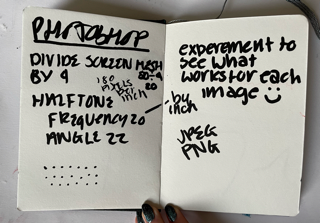 PHOTOSHOP
DIVIDE SCREEN MESH
BY 4
180
PIXELS
PER
INCH
80÷4
20
HALFTONE
FREQUENCY 20
ANGLE 22
by
inch
experement to
see what
works for each
image
JPEG
PNG